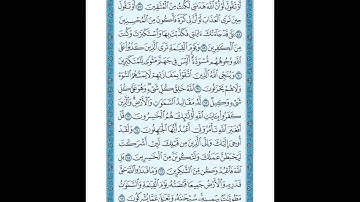 أَوْ تَقُولَ لَوْ أَنَّ ٱللَّهَ هَدَىٰنِى لَكُنتُ مِنَ ٱلْمُتَّقِينَ ٥٧ أَوْ تَقُولَ
حِينَ تَرَى ٱلْعَذَابَ لَوْ أَنَّ لِى كَرَّةً فَأَكُونَ مِنَ ٱلْمُحْسِنِينَ
٥٨ بَلَىٰ قَدْ جَآءَتْكَ ءَايَٰتِى فَكَذَّبْتَ بِهَا وَٱسْتَكْبَرْتَ وَكُنتَ
مِنَ ٱلْكَٰفِرِينَ ٥٩ وَيَوْمَ ٱلْقِيَٰمَةِ تَرَى ٱلَّذِينَ كَذَبُوا۟ عَلَى
ٱللَّهِ وُجُوهُهُم مُّسْوَدَّةٌ أَلَيْسَ فِى جَهَنَّمَ مَثْوًى لِّلْمُتَكَبِّرِينَ
٦٠ وَيُنَجِّى ٱللَّهُ ٱلَّذِينَ ٱتَّقَوْا۟ بِمَفَازَتِهِمْ لَا يَمَسُّهُمُ ٱلسُّوٓءُ
وَلَا هُمْ يَحْزَنُونَ ٦١ ٱللَّهُ خَٰلِقُ كُلِّ شَىْءٍ وَهُوَ عَلَىٰ كُلِّ
شَىْءٍ وَكِيلٌ ٦٢ لَّهُۥ مَقَالِيدُ ٱلسَّمَٰوَٰتِ وَٱلْأَرْضِ وَٱلَّذِينَ
كَفَرُوا۟ بِـَٔايَٰتِ ٱللَّهِ أُو۟لَٰٓئِكَ هُمُ ٱلْخَٰسِرُونَ ٦٣ قُلْ
أَفَغَيْرَ ٱللَّهِ تَأْمُرُوٓنِّىٓ أَعْبُدُ أَيُّهَا ٱلْجَٰهِلُونَ ٦٤ وَلَقَدْ
أُوحِىَ إِلَيْكَ وَإِلَى ٱلَّذِينَ مِن قَبْلِكَ لَئِنْ أَشْرَكْتَ
لَيَحْبَطَنَّ عَمَلُكَ وَلَتَكُونَنَّ مِنَ ٱلْخَٰسِرِينَ ٦٥ بَلِ
ٱللَّهَ فَٱعْبُدْ وَكُن مِّنَ ٱلشَّٰكِرِينَ ٦٦ وَمَا قَدَرُوا۟ ٱللَّهَ حَقَّ
قَدْرِهِۦ وَٱلْأَرْضُ جَمِيعًا قَبْضَتُهُۥ يَوْمَ ٱلْقِيَٰمَةِ وَٱلسَّمَٰوَٰتُ
مَطْوِيَّٰتٌۢ بِيَمِينِهِۦ سُبْحَٰنَهُۥ وَتَعَٰلَىٰ عَمَّا يُشْرِكُونَ ٦٧